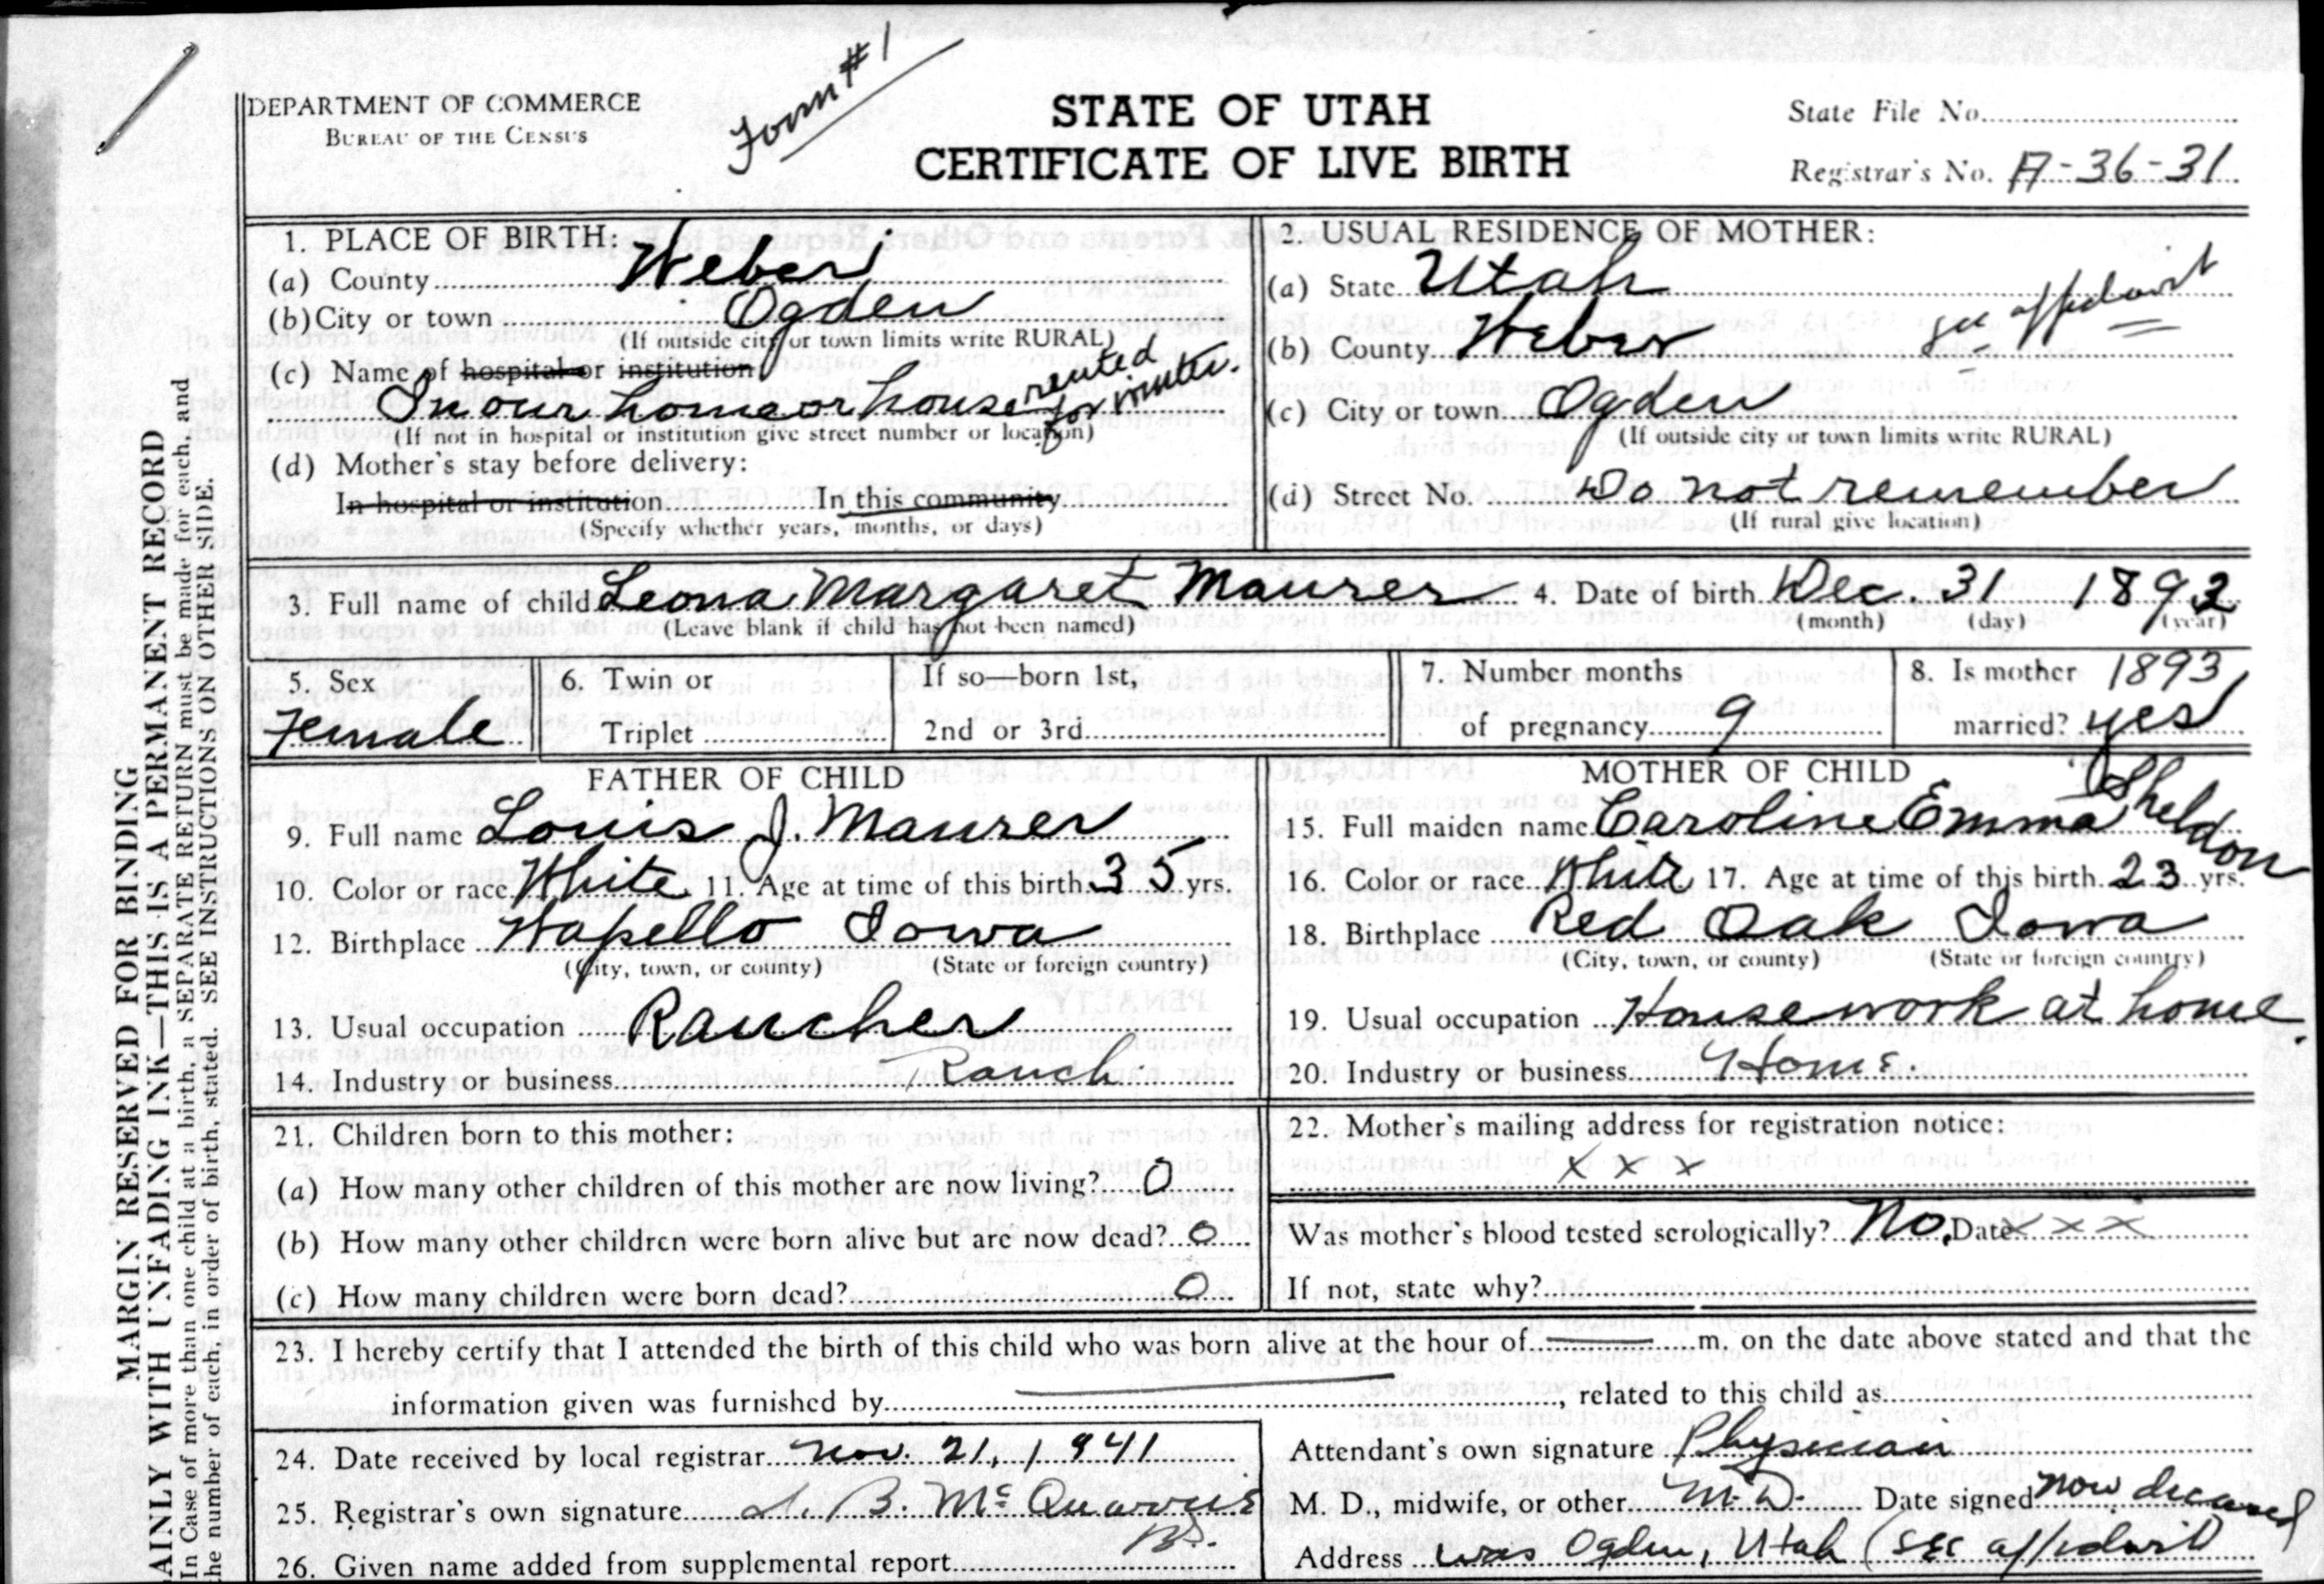 Form #1
DEPARTMENT OF COMMERCE
BUREAU OF THE CENSUS
STATE OF UTAH
CERTIFICATE OF LIVE BIRTH
State File No.
Registrar's No. A-36-31
MARGIN RESERVED FOR BINDING
AINLY WITH UNFADING INK—THIS IS A PERMANENT RECORD
In Case of more than one child at a birth, a SEPARATE RETURN must be made for each, and
the number of each in order of birth, stated. SEE INSTRUCTIONS ON OTHER SIDE.
1. PLACE OF BIRTH:
(a) County Weber
(b) City or town Ogden
(If outside city or town limits write RURAL)
(c) Name of hospital or institution
In our home or house rented for winter.
(If not in hospital or institution give street number or location)
(d) Mother's stay before delivery:
In hospital or institution In this community
(Specify whether years, months, or days)
2. USUAL RESIDENCE OF MOTHER:
(a) State Utah
see affidavit
(b) County Weber
(c) City or town Ogden
(If outside city or town limits write RURAL)
(d) Street No. Do not remember
(If rural give location)
3. Full name of child Leona Margaret Maurer 4. Date of birth Dec. 31 1892
(Leave blank if child has not been named) (month) (day) (year)
1893
5. Sex Female
6. Twin or
Triplet
If so—born 1st,
2nd or 3rd
7. Number months
of pregnancy 9
8. Is mother
married? yes
FATHER OF CHILD
9. Full name Louis J. Maurer
10. Color or race White 11. Age at time of this birth 35 yrs.
12. Birthplace Wapello Iowa
(City, town, or county) (State or foreign country)
13. Usual occupation Rancher
14. Industry or business Ranch
MOTHER OF CHILD
15. Full maiden name Caroline Emma Sheldon
16. Color or race White 17. Age at time of this birth 23 yrs.
18. Birthplace Red Oak Iowa
(City, town, or county) (State or foreign country)
19. Usual occupation Housework at home.
20. Industry or business Home.
21. Children born to this mother:
(a) How many other children of this mother are now living? 0
(b) How many other children were born alive but are now dead? 0
(c) How many children were born dead? 0
22. Mother's mailing address for registration notice:
x x x
Was mother's blood tested serologically? No. Date x x x
If not, state why?
23. I hereby certify that I attended the birth of this child who was born alive at the hour of m. on the date above stated and that the
information given was furnished by , related to this child as
24. Date received by local registrar Nov. 21, 1941
25. Registrar's own signature
26. Given name added from supplemental report
Attendant's own signature Physician
M. D., midwife, or other M.D. Date signed now deceased
Address was Ogden, Utah (see affidavit